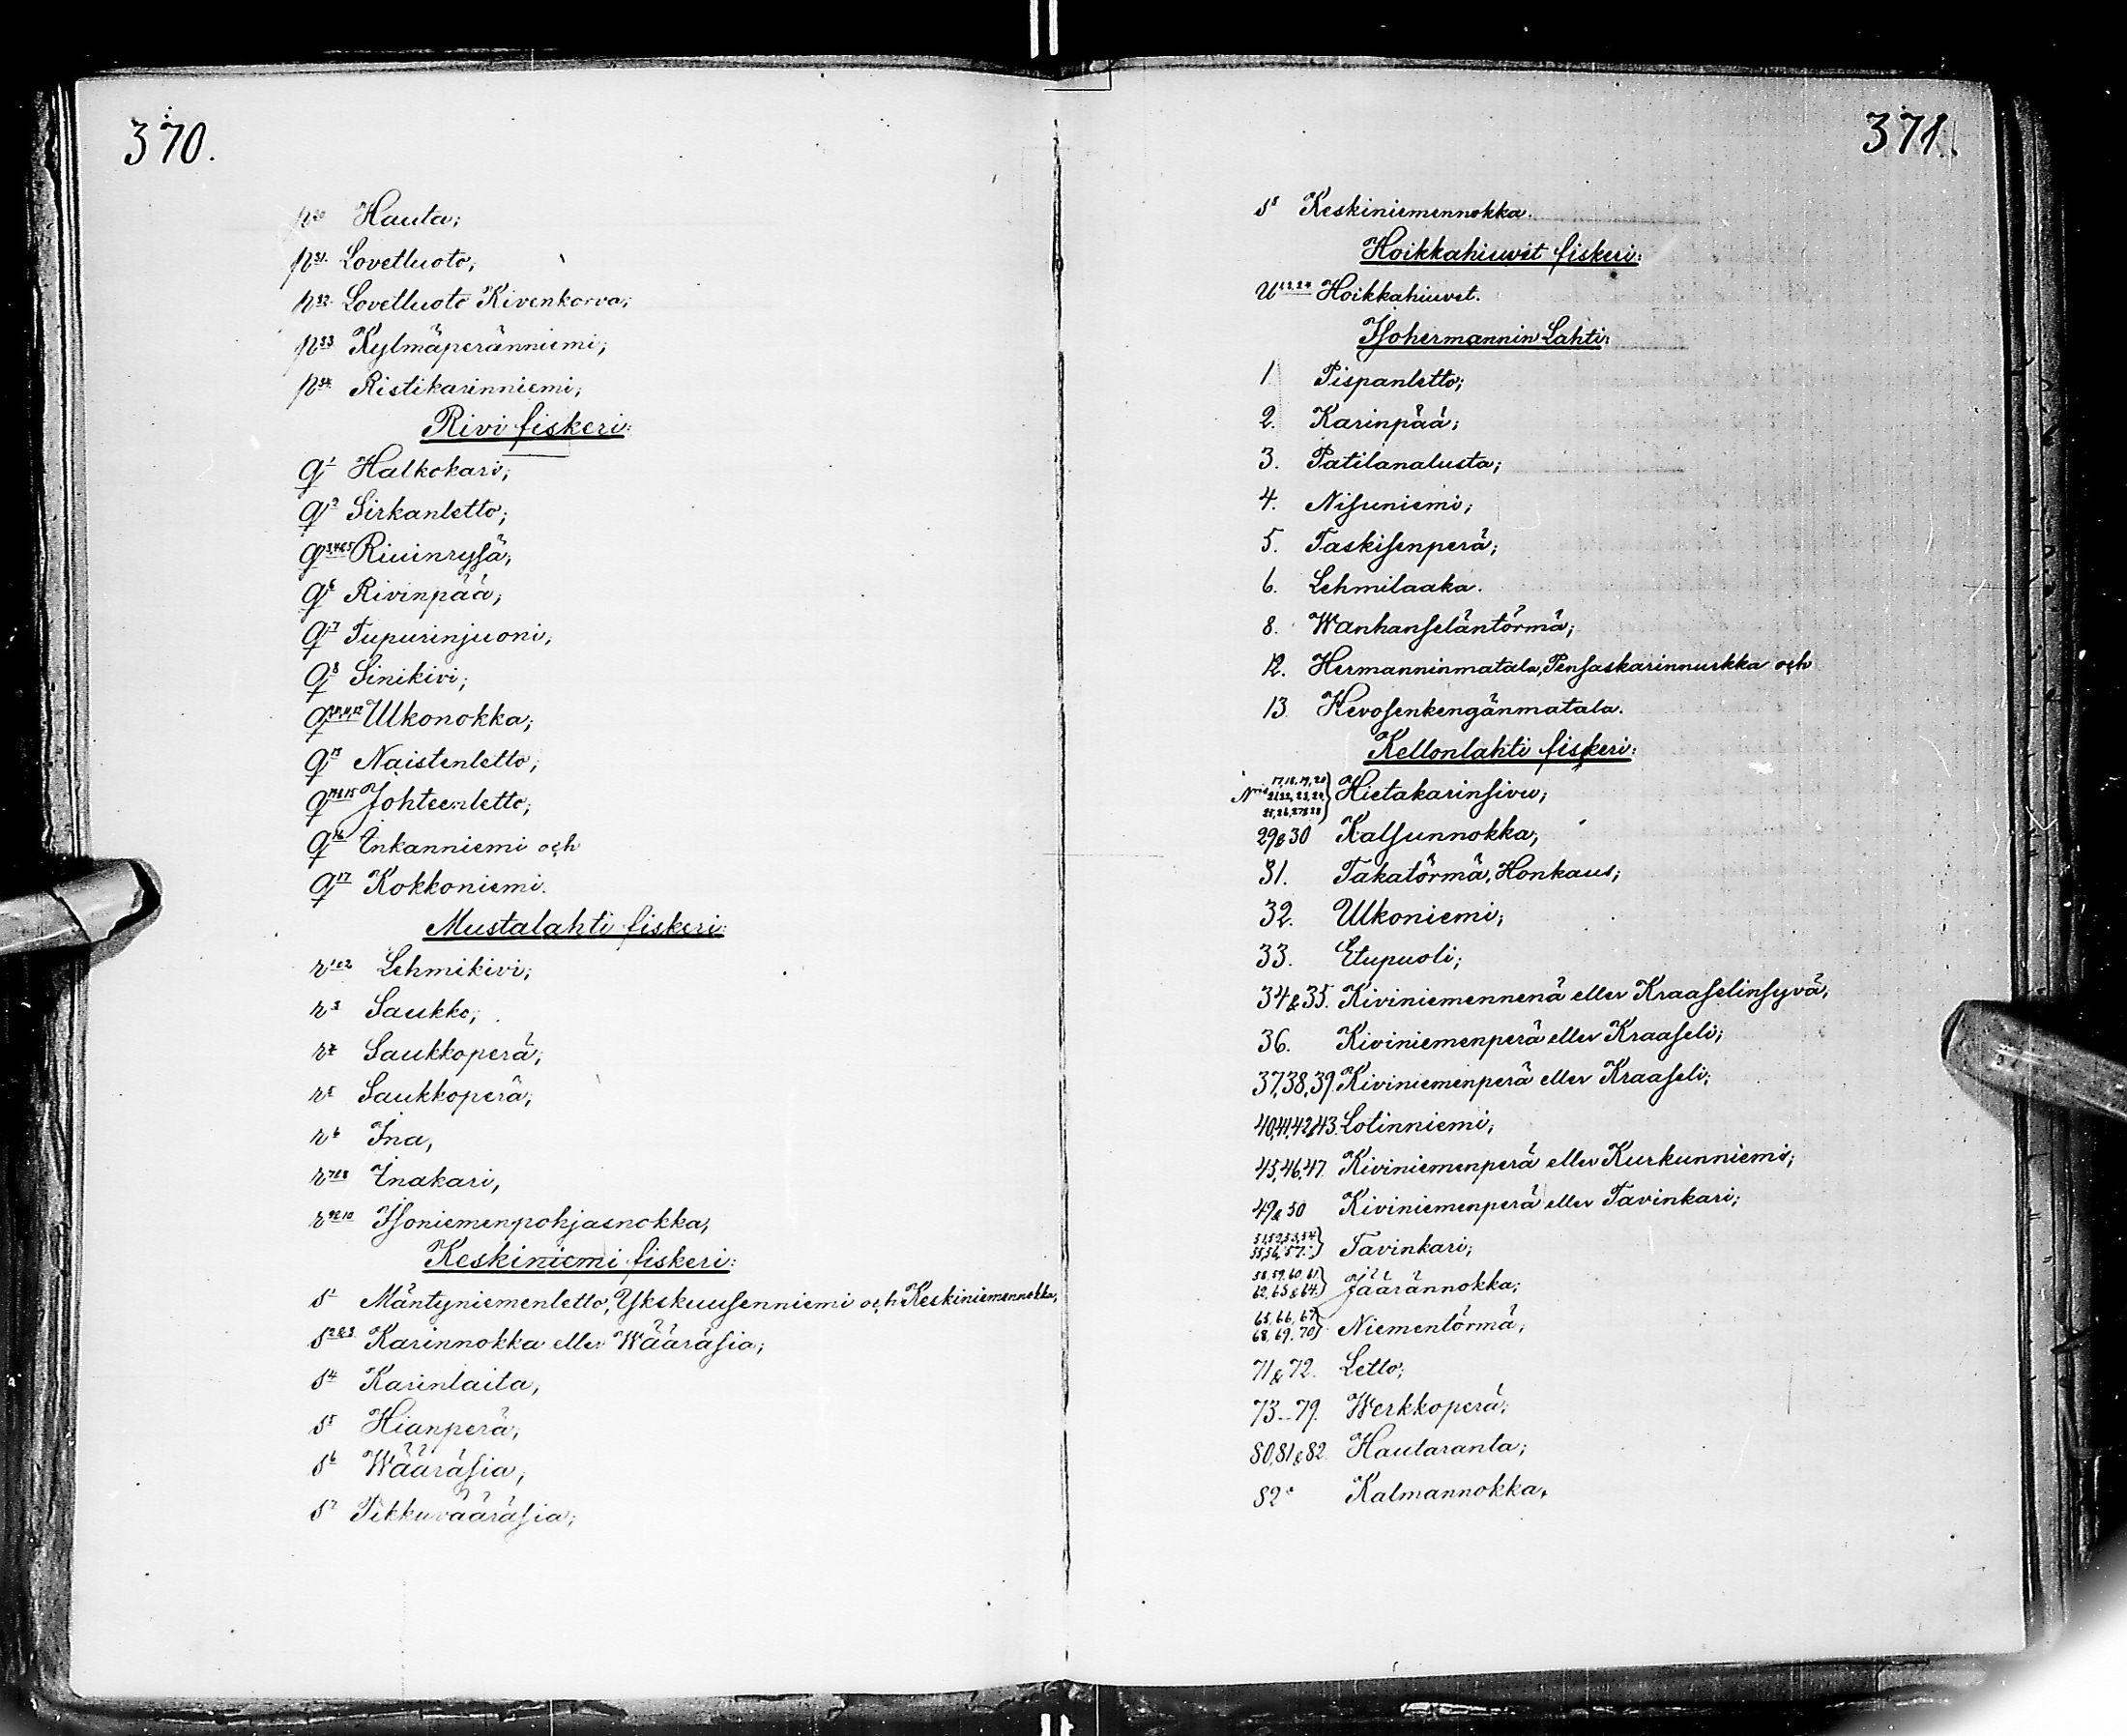 370.
p30 Hauta;
p31. Lovetluoto;
p32. Lovetluoto Kivenkorva;
p33 Kylmäperänniemi;
p34. Ristikarinniemi;
Rivi fiskeri:
q1 Halkokari;
q2 Sirkanletto;
q3,4&5 Rivinrysä;
q6 Rivinpää;
q7 Tupurinjuoni;
q8 Sinikivi;
Ulkonokka;
q13 Naistenletto;
q14&15 Johteenletto;
q16 Inkanniemi och
q17 Kokkoniemi.
Mustalahti fiskeri:
r1&2 Lehmikivi;
r3 Saukko;
r4 Saukkoperä;
r5 Saukkoperä;
r6 Ina,
r7&8 Inakari,
r9&10 Isoniemenpohjaenokka,
Keskiniemi fiskeri:
s1 Mäntyniemenletto, Ykskuusenniemi och Keskiniemennokka,
s2&3 Karinnokka eller Wääräsia;
s4 Karinlaita,
s5 Hianperä;
s6 Wääräsia;
s7 Pikkuvääräsia;
371.
s8 Keskiniemennokka.
Hoikkahiuvet fiskeri:
Hoikkahiuvet.
Isohermannin Lahti:
1. Pispanletto;
2. Karinpää;
3. Patilanalusta;
4. Nisuniemi;
5. Taskisenperä;
6. Lehmilaaka.
8. Wanhanseläntörmä;
12. Hermanninmatala, Pensaskarinnurkka och
13. Hevosenkengänmatala.
Kellonlahti fiskeri:
N:ris 17, 18, 19, 20
21, 22, 23, 24 Hietakarinsivu;
25, 26, 27 & 28
29 & 30 Kalsunnokka;
31. Takatörmä, Honkaus;
32. Ulkoniemi;
33. Etupuoli;
34 & 35. Kiviniemennenä eller Kraaselinsyvä,
36. Kiviniemenperä eller Kraaseli;
37, 38, 39. Kiviniemenperä eller Kraaseli;
40, 41, 42 & 43. Lotinniemi;
45, 46, 47. Kiviniemenperä eller Kurkunniemi;
49 & 50 Kiviniemenperä eller Tavinkari;
51, 52, 53, 54
55, 56, 57. Tavinkari;
58, 59, 60, 61
62, 63 & 64. Jäärännokka;
65, 66, 67
68, 69, 70 Niementörmä;
71 & 72. Letto;
73–79. Werkkoperä;
80, 81 & 82. Hautaranta;
82a Kalmannokka,